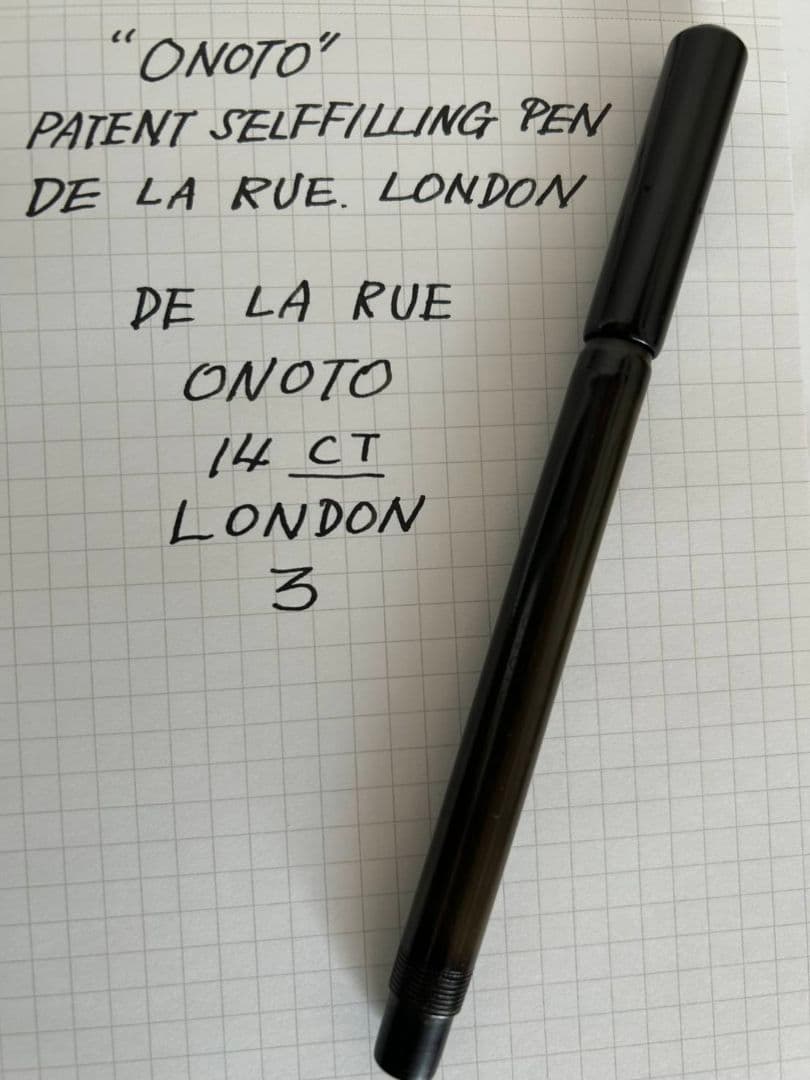 "ONOTO"
PATENT SELFFILLING PEN
DE LA RUE. LONDON
DE LA RUE
ONOTO
14 CT
LONDON
3